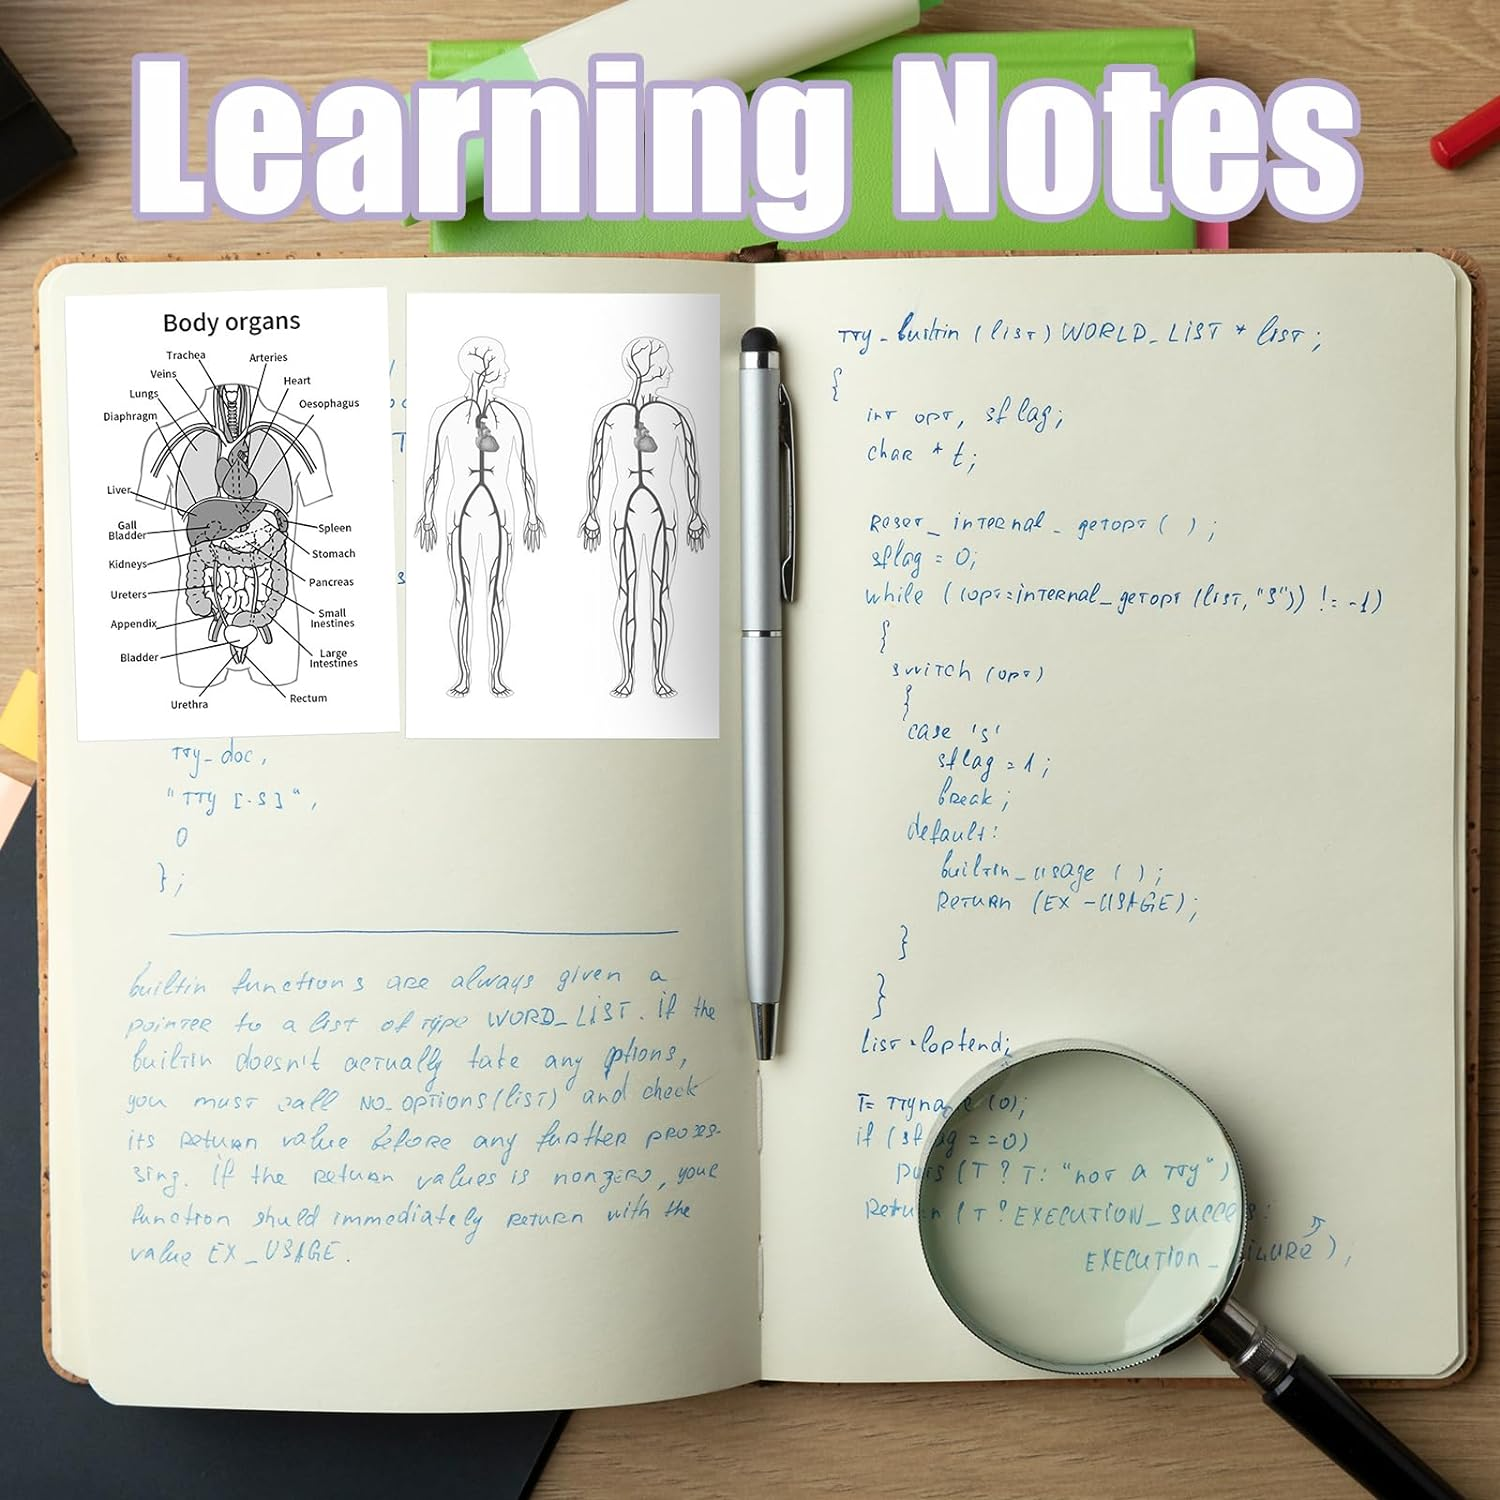 Learning Notes
Body organs
Trachea
Arteries
Veins
Heart
Lungs
Oesophagus
Diaphragm
Liver
Gall
Bladder
Spleen
Stomach
Kidneys
Pancreas
Ureters
Small
Inestines
Appendix
Large
Intestines
Bladder
Rectum
Urethra
TTy_doc,
"TTy [-S]",
0
};
builtin functions are always given a
pointer to a list of type WORD_LIST. if the
builtin doesn't actually take any options,
you must call no_options(list) and check
its return value before any further proces-
sing. if the return values is nonzero, your
function shuld immediately return with the
value EX_USAGE.
TTy_builtin (list) WORLD_LIST * list;
{
int opt, sflag;
char * t;
Reset_internal_getopt ( );
sflag = 0;
while ((opt=internal_getopt (list, "S")) != -1)
{
switch (opt)
{
case 's'
sflag = 1;
break;
default:
builtin_usage ( );
Return (EX-USAGE);
}
}
List = loptend;
T= TTyname (0);
if (sflag ==0)
puts (T ? T: "not a TTy")
Return (T ? EXECUTION_SUCCES:
EXECUTION_ ),